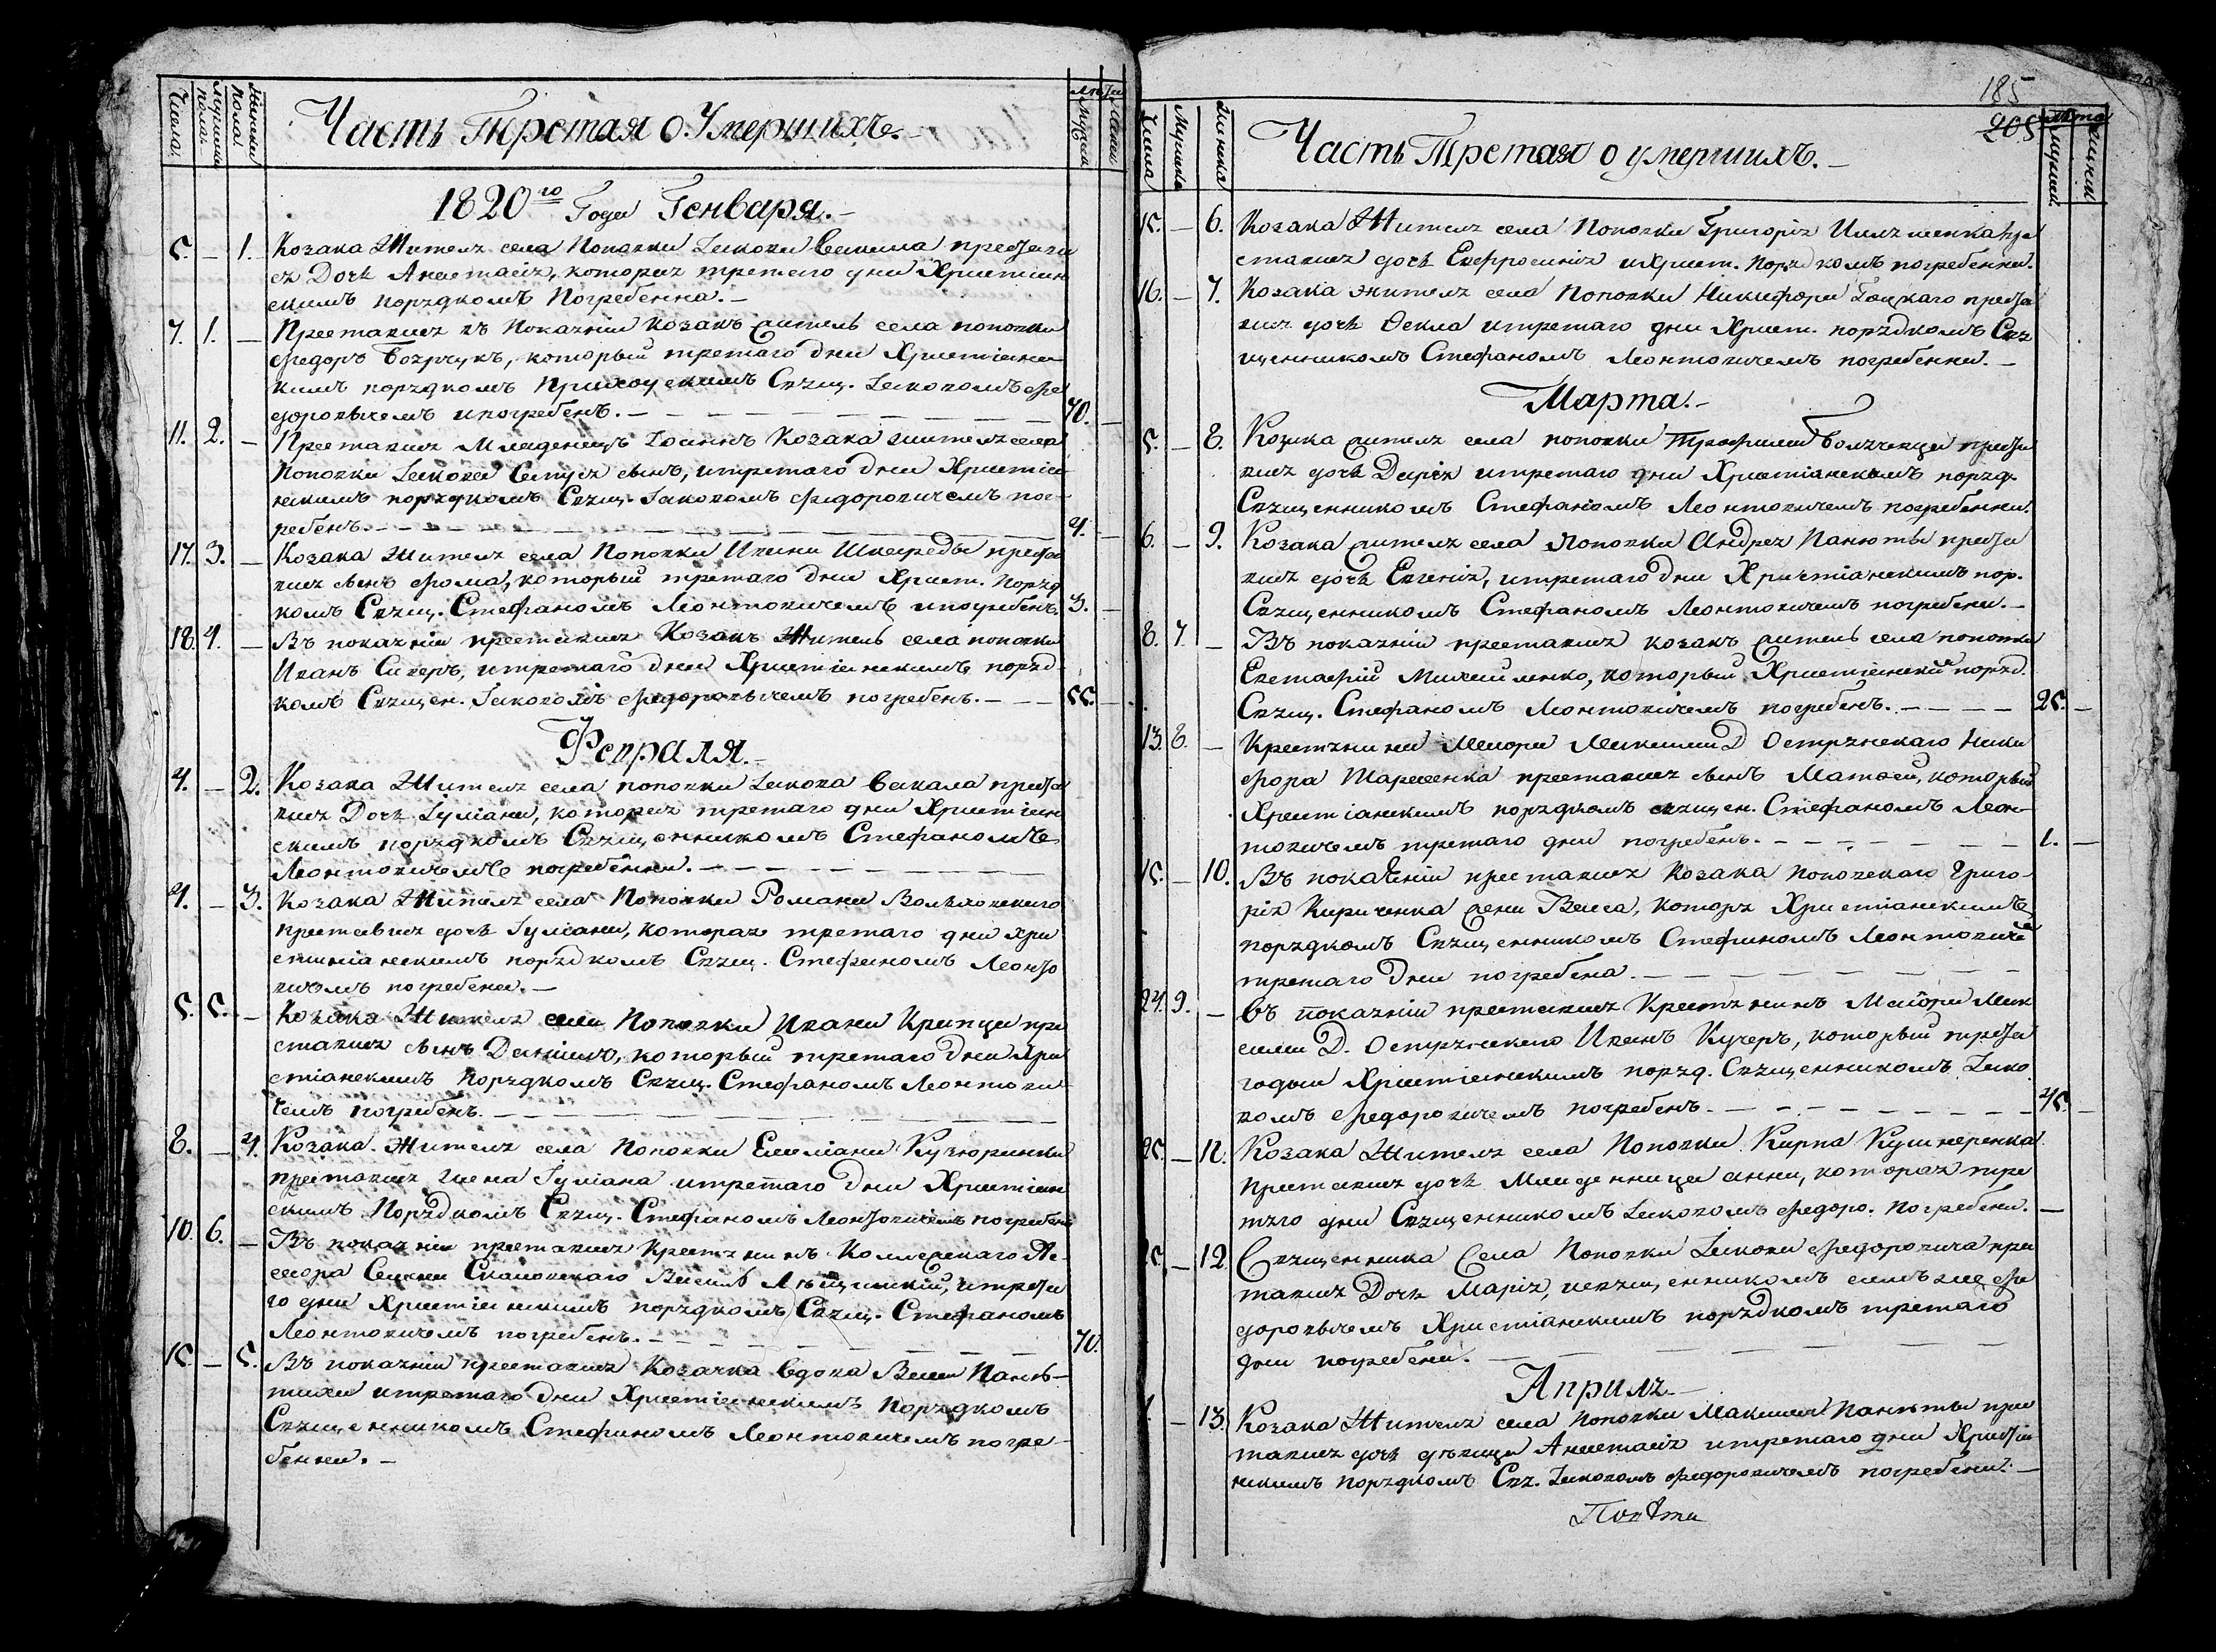 Числа.
Мужеска пола.
Женска пола.
Часть Третая О Умершихъ.
Лѣта
Мужеск
Женск
1820го Года Генваря.
5. — 1. Козака Жителя села Поповки Іакова Бакала преста
ся Дочь Анастасія, которая третего дни Христіан
скимъ порядкомъ Погребенна.—
7. 1. — Преставися въ Покаяніи козакъ житель села поповки
Федоръ Боярчукъ, который третаго дни Христіанс
кимъ порядкомъ Приходскимъ Свящ. Іаковомъ Фе
доровичемъ и погребенъ. — 70.
11. 2. — Преставися Младенецъ Іоаннъ Козака жителя села
Поповки Іакова сынъ, и третаго дни Христіа
нскимъ порядкомъ Свящ. Іаковомъ Федоровичемъ пог-
ребенъ. — 4.
17. 3. — Козака Жителя села Поповки Ивана Шкереды преста
вися сынъ Фома, который третаго дни Христ. поряд
комъ Свящ. Стефаномъ Леонтовичемъ и погребенъ. 3.
18. 4. — Въ покаяніи преставися Козакъ Житель села поповки
Иванъ, и третаго дни Христіанскимъ поряд
комъ Священ. Іаковомъ Федоровичемъ погребенъ. — 55.
Февраля.
4. — 2. Козака Жителя села поповки Іакова Бакала преста
вися Дочь Іуліана, которая третаго дни Христіан
скимъ порядкомъ Священникомъ Стефаномъ
Леонтовичемъ погребенна.
4. — 3. Козака Жителя села Поповки Романа
преставися дочь Іуліана, которая третаго дни Хри
стіанскимъ порядкомъ Свящ. Стефаномъ Леонто
вичемъ погребена. —
5. 5. — Козака Жителя села Поповки Ивана Крипца пре
ставися сынъ Даніилъ, который третаго дни Хри
стіанскимъ Порядкомъ Свящ. Стефаномъ Леонтови
чемъ погребенъ.
8. — 4. Козака Жителя села Поповки Емиліана
преставися жена Іуліана и третаго дни Христіан
скимъ Порядкомъ Свящ. Стефаномъ Леонтовичемъ погребена
10. 6. — Въ покаяніи преставися Крестянинъ Коллежскаго Ас-
сесора Василь и трета
го дни Христіанскимъ порядкомъ Свящ. Стефаномъ
Леонтовичемъ погребенъ. — 70.
15. — 5. Въ покаяніи преставися Козачка вдова
и третаго дни Христіанскимъ Порядкомъ
Священникомъ Стефаномъ Леонтовичемъ погре-
бенна. —
185
205
Числа
Мужеска
Женска
Часть Третая о умершихъ.—
Лѣта
Мужеск
Женск
15. — 6. Козака Жителя села Поповки Григорія пре
ставися дочь Евфросинія и Христ. порядкомъ погребенна.
16. — 7. Козака жителя села Поповки Никифора Гоцкаго преста
вися дочь Фекла и третаго дни Христ. порядкомъ Свя
щенникомъ Стефаномъ Леонтовичемъ погребенна. —
Марта.—
5. — 8. Козака жителя села поповки Трофима преста
вися дочь Дарія и третаго дни Христіанскимъ поряд.
Священникомъ Стефаномъ Леонтовичемъ погребенна.
6. — 9. Козака жителя села Поповки Андрея Панюты преста
вися дочь Евгенія, и третаго дни Христіанскимъ пор.
Священникомъ Стефаномъ Леонтовичемъ погребена. —
8. 7. — Въ покаяніи преставися козакъ житель села поповки
Евстафій Михайленко, который Христіанскій поряд.
Свящ. Стефаномъ Леонтовичемъ погребенъ. — 25.
13. 8. — Крестянина Маіора Максима Д Остраскаго Ники
фора Тарасенка преставися сынъ Матфей, который
Христіанскимъ порядкомъ священ. Стефаномъ Леон-
товичемъ третаго дни погребенъ. — 1.
15. — 10. Въ покаяніи преставися Козака поповскаго Григо-
рія Кириченка жена Васса, котора Христіанскимъ
порядкомъ Священникомъ Стефаномъ Леонтовиче
третаго дни погребена.
24. 9. — въ покаяніи преставися Крестянинъ Маіора Мак
сима Д. Остраскаго Иванъ Кучеръ, который трета
годни Христіанскимъ поряд. Священникомъ Іако
вомъ Федоровичемъ погребенъ. — 45.
25. — 11. Козака Жителя села Поповки Карпа Кушнеренка
Преставися дочь Младенница анна, которая тре
тяго дни Священникомъ Іаковомъ Федоро. Погребена. —
25. — 12. Священника Села Поповки Іакова Федоровича пре
тавися Дочь Марія, и священникомъ симъ же Фе
доровичемъ Христіанскимъ порядкомъ третаго
дни погребена.
Априля.—
1. — 13. Козака Жителя села Поповки Максима Панюты пре
тавися дочь дѣвица Анастасія и третаго дни Христіа
нскимъ порядкомъ Свя. Іаковомъ Федоровичемъ погребена. —